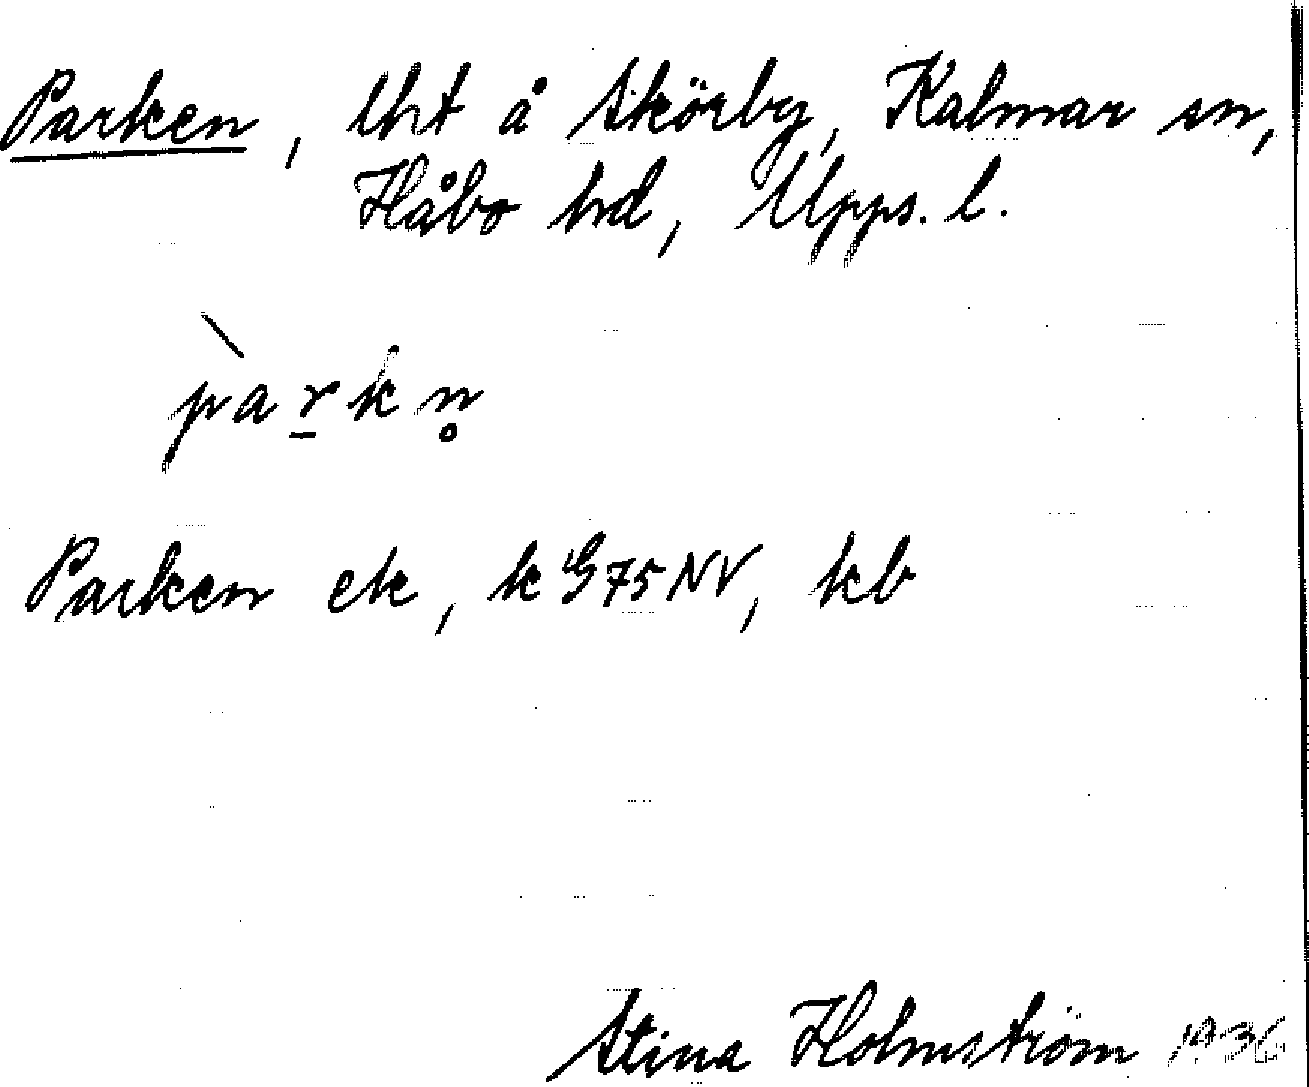 Parken, lht å Skörby, Kalmar sn,
Håbo hd, Upps. l.
pàr̠kn̥
Parken ek, k G75NV, kb
Stina Holmström 1936